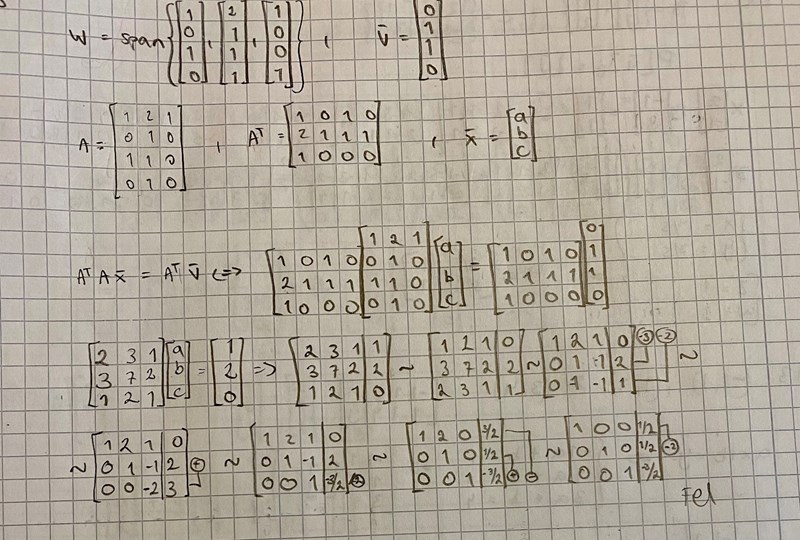 W = span{[1 0 1 0], [2 1 1 1], [1 0 0 1]}, v̄ = [0 1 1 0]
A = [1 2 1; 0 1 0; 1 1 0; 0 1 0], Aᵀ = [1 0 1 0; 2 1 1 1; 1 0 0 0], x̄ = [a b c]
AᵀA x̄ = Aᵀ v̄ <=> [1 0 1 0; 2 1 1 1; 1 0 0 0] [1 2 1; 0 1 0; 1 1 0; 0 1 0] [a b c] = [1 0 1 0; 2 1 1 1; 1 0 0 0] [0 1 1 0]
[2 3 1; 3 7 2; 1 2 1] [a b c] = [1 2 0] => [2 3 1 | 1; 3 7 2 | 2; 1 2 1 | 0] ~ [1 2 1 | 0; 3 7 2 | 2; 2 3 1 | 1] ~ [1 2 1 | 0; 0 1 -1 | 2; 0 -1 -1 | 1] -3 -2 ~
~ [1 2 1 | 0; 0 1 -1 | 2; 0 0 -2 | 3] + ~ [1 2 1 | 0; 0 1 -1 | 2; 0 0 1 | -3/2] ~ [1 2 0 | 3/2; 0 1 0 | 1/2; 0 0 1 | -3/2] ~ [1 0 0 | 1/2; 0 1 0 | 1/2; 0 0 1 | -3/2] -2
Fel